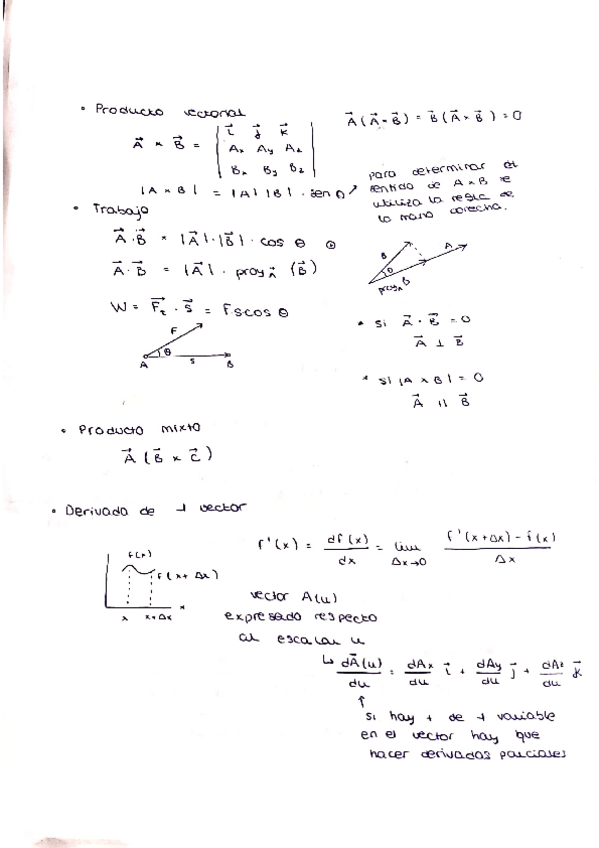 • Producto vectorial
A⃗ × B⃗ = | i⃗ j⃗ k⃗ |
| Ax Ay Az |
| Bx By Bz |
|A × B| = |A| |B| · sen θ
A⃗ (A⃗ × B⃗) = B⃗ (A⃗ × B⃗) = 0
para determinar el
sentido de A × B se
utiliza la regla de
la mano derecha.
• Trabajo
A⃗ · B⃗ = |A⃗| · |B⃗| · cos θ
A⃗ · B⃗ = |A⃗| · proy A⃗ (B⃗)
W = F⃗t · s⃗ = F.s cos θ
F
θ
A s B
B A
θ
proyA B
* Si A⃗ · B⃗ = 0
A⃗ ⊥ B⃗
* Si |A × B| = 0
A⃗ ıı B⃗
• Producto mixto
A⃗ (B⃗ × C⃗)
• Derivada de 1 vector
f(x)
f(x + Δx)
x x+Δx x
f'(x) = df(x)/dx = lim Δx→0 f'(x+Δx) - f(x) / Δx
vector A(u)
expresado respecto
al escalar u
↳ dA⃗(u)/du = dAx/du i⃗ + dAy/du j⃗ + dAz/du k⃗
↑
si hay + de 1 variable
en el vector hay que
hacer derivadas parciales